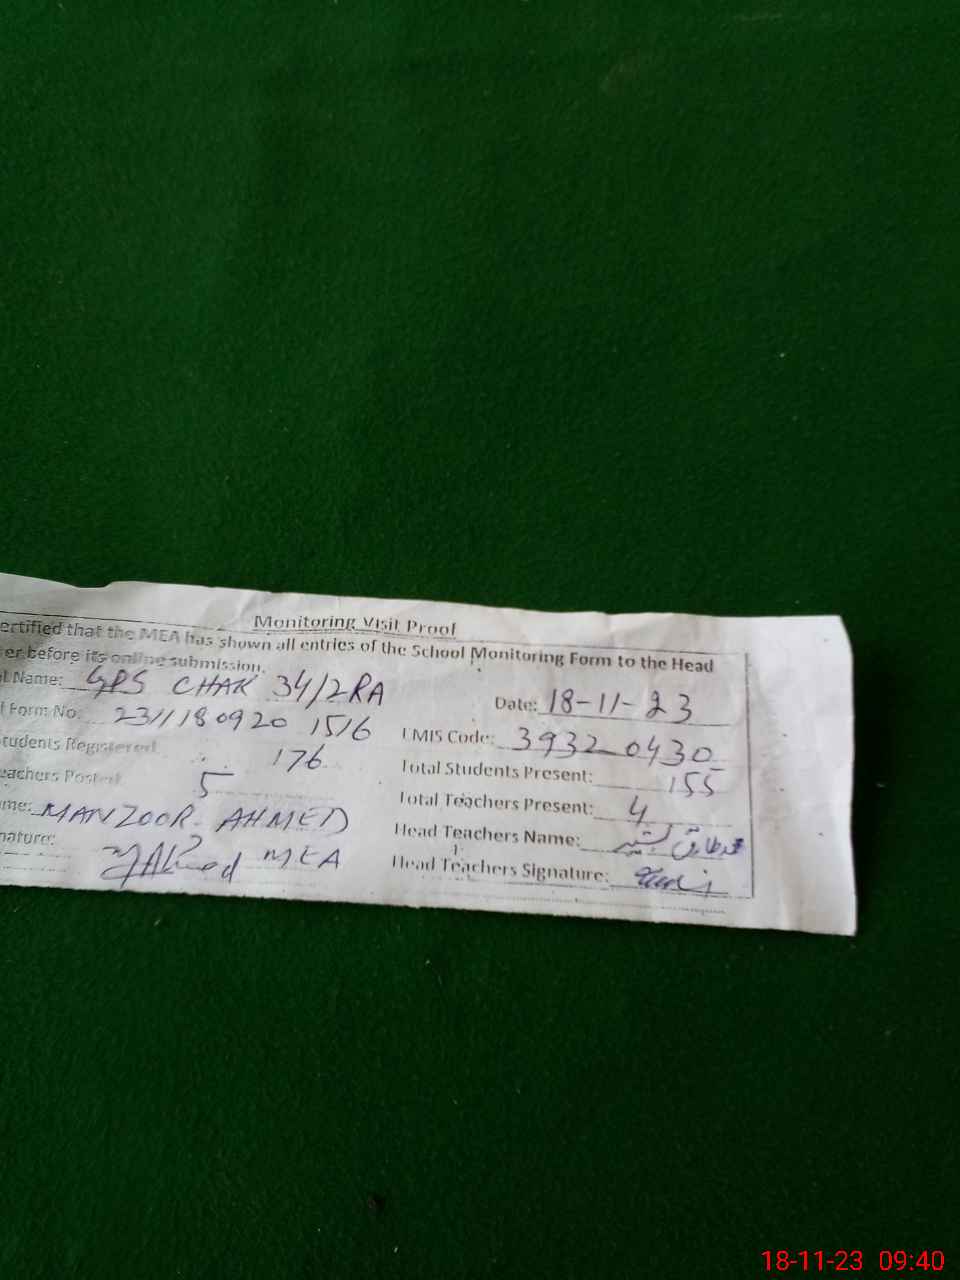 Monitoring Visit Proof
ertified that the MEA has shown all entries of the School Monitoring Form to the Head
er before its online submission.
l Name: GPS CHAK 34/2RA Date: 18-11-23
l Form No: 23111809201516 EMIS Code: 39320430
tudents Registered 176 Total Students Present: 155
eachers Posted 5 Total Teachers Present: 4
me: MANZOOR AHMED Head Teachers Name: محمد طارق بشیر
nature: MAhmed MEA Head Teachers Signature:
18-11-23 09:40